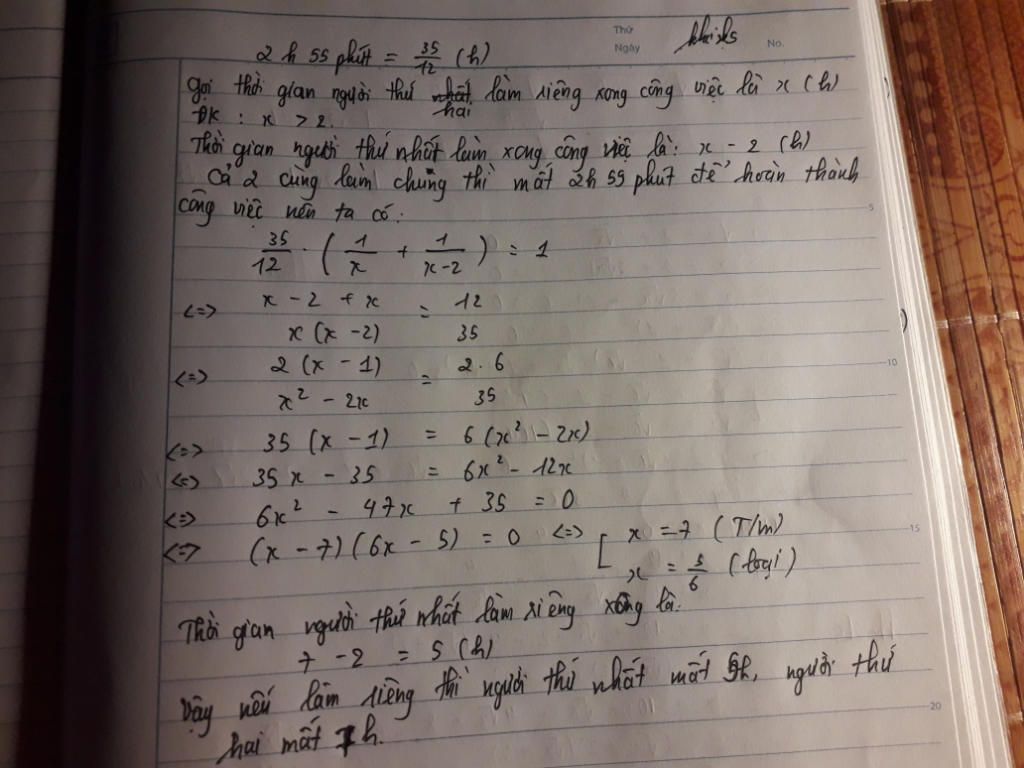 Thứ
Ngày
No.
2 h 55 phút = 35/12 (h)
Gọi thời gian người thứ nhất hai làm riêng xong công việc là x (h)
ĐK : x > 2.
Thời gian người thứ nhất làm xong công việc là: x - 2 (h)
Cả 2 cùng làm chung thì mất 2h 55 phút để hoàn thành
công việc nên ta có:
35/12 . (1/x + 1/(x-2)) = 1
<=> (x - 2 + x)/(x (x - 2)) = 12/35
<=> 2 (x - 1)/(x² - 2x) = 2.6/35
<=> 35 (x - 1) = 6 (x² - 2x)
<=> 35 x - 35 = 6x² - 12x
<=> 6x² - 47x + 35 = 0
<=> (x - 7) (6x - 5) = 0 <=> [ x = 7 (T/m)
x = 5/6 (loại)
Thời gian người thứ nhất làm riêng xong là:
7 - 2 = 5 (h)
Vậy nếu làm riêng thì người thứ nhất mất 5h, người thứ
hai mất 7 h.
5
10
15
20